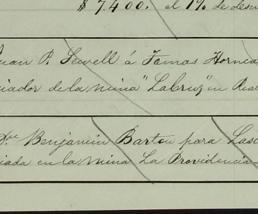 $7.400. al 1% de des
uan P. Sewell á Tomas Hornca
iador de la mina "Labrig" en Real
Dr. Benjamin Barton para Las
iada en la mina La Providencia